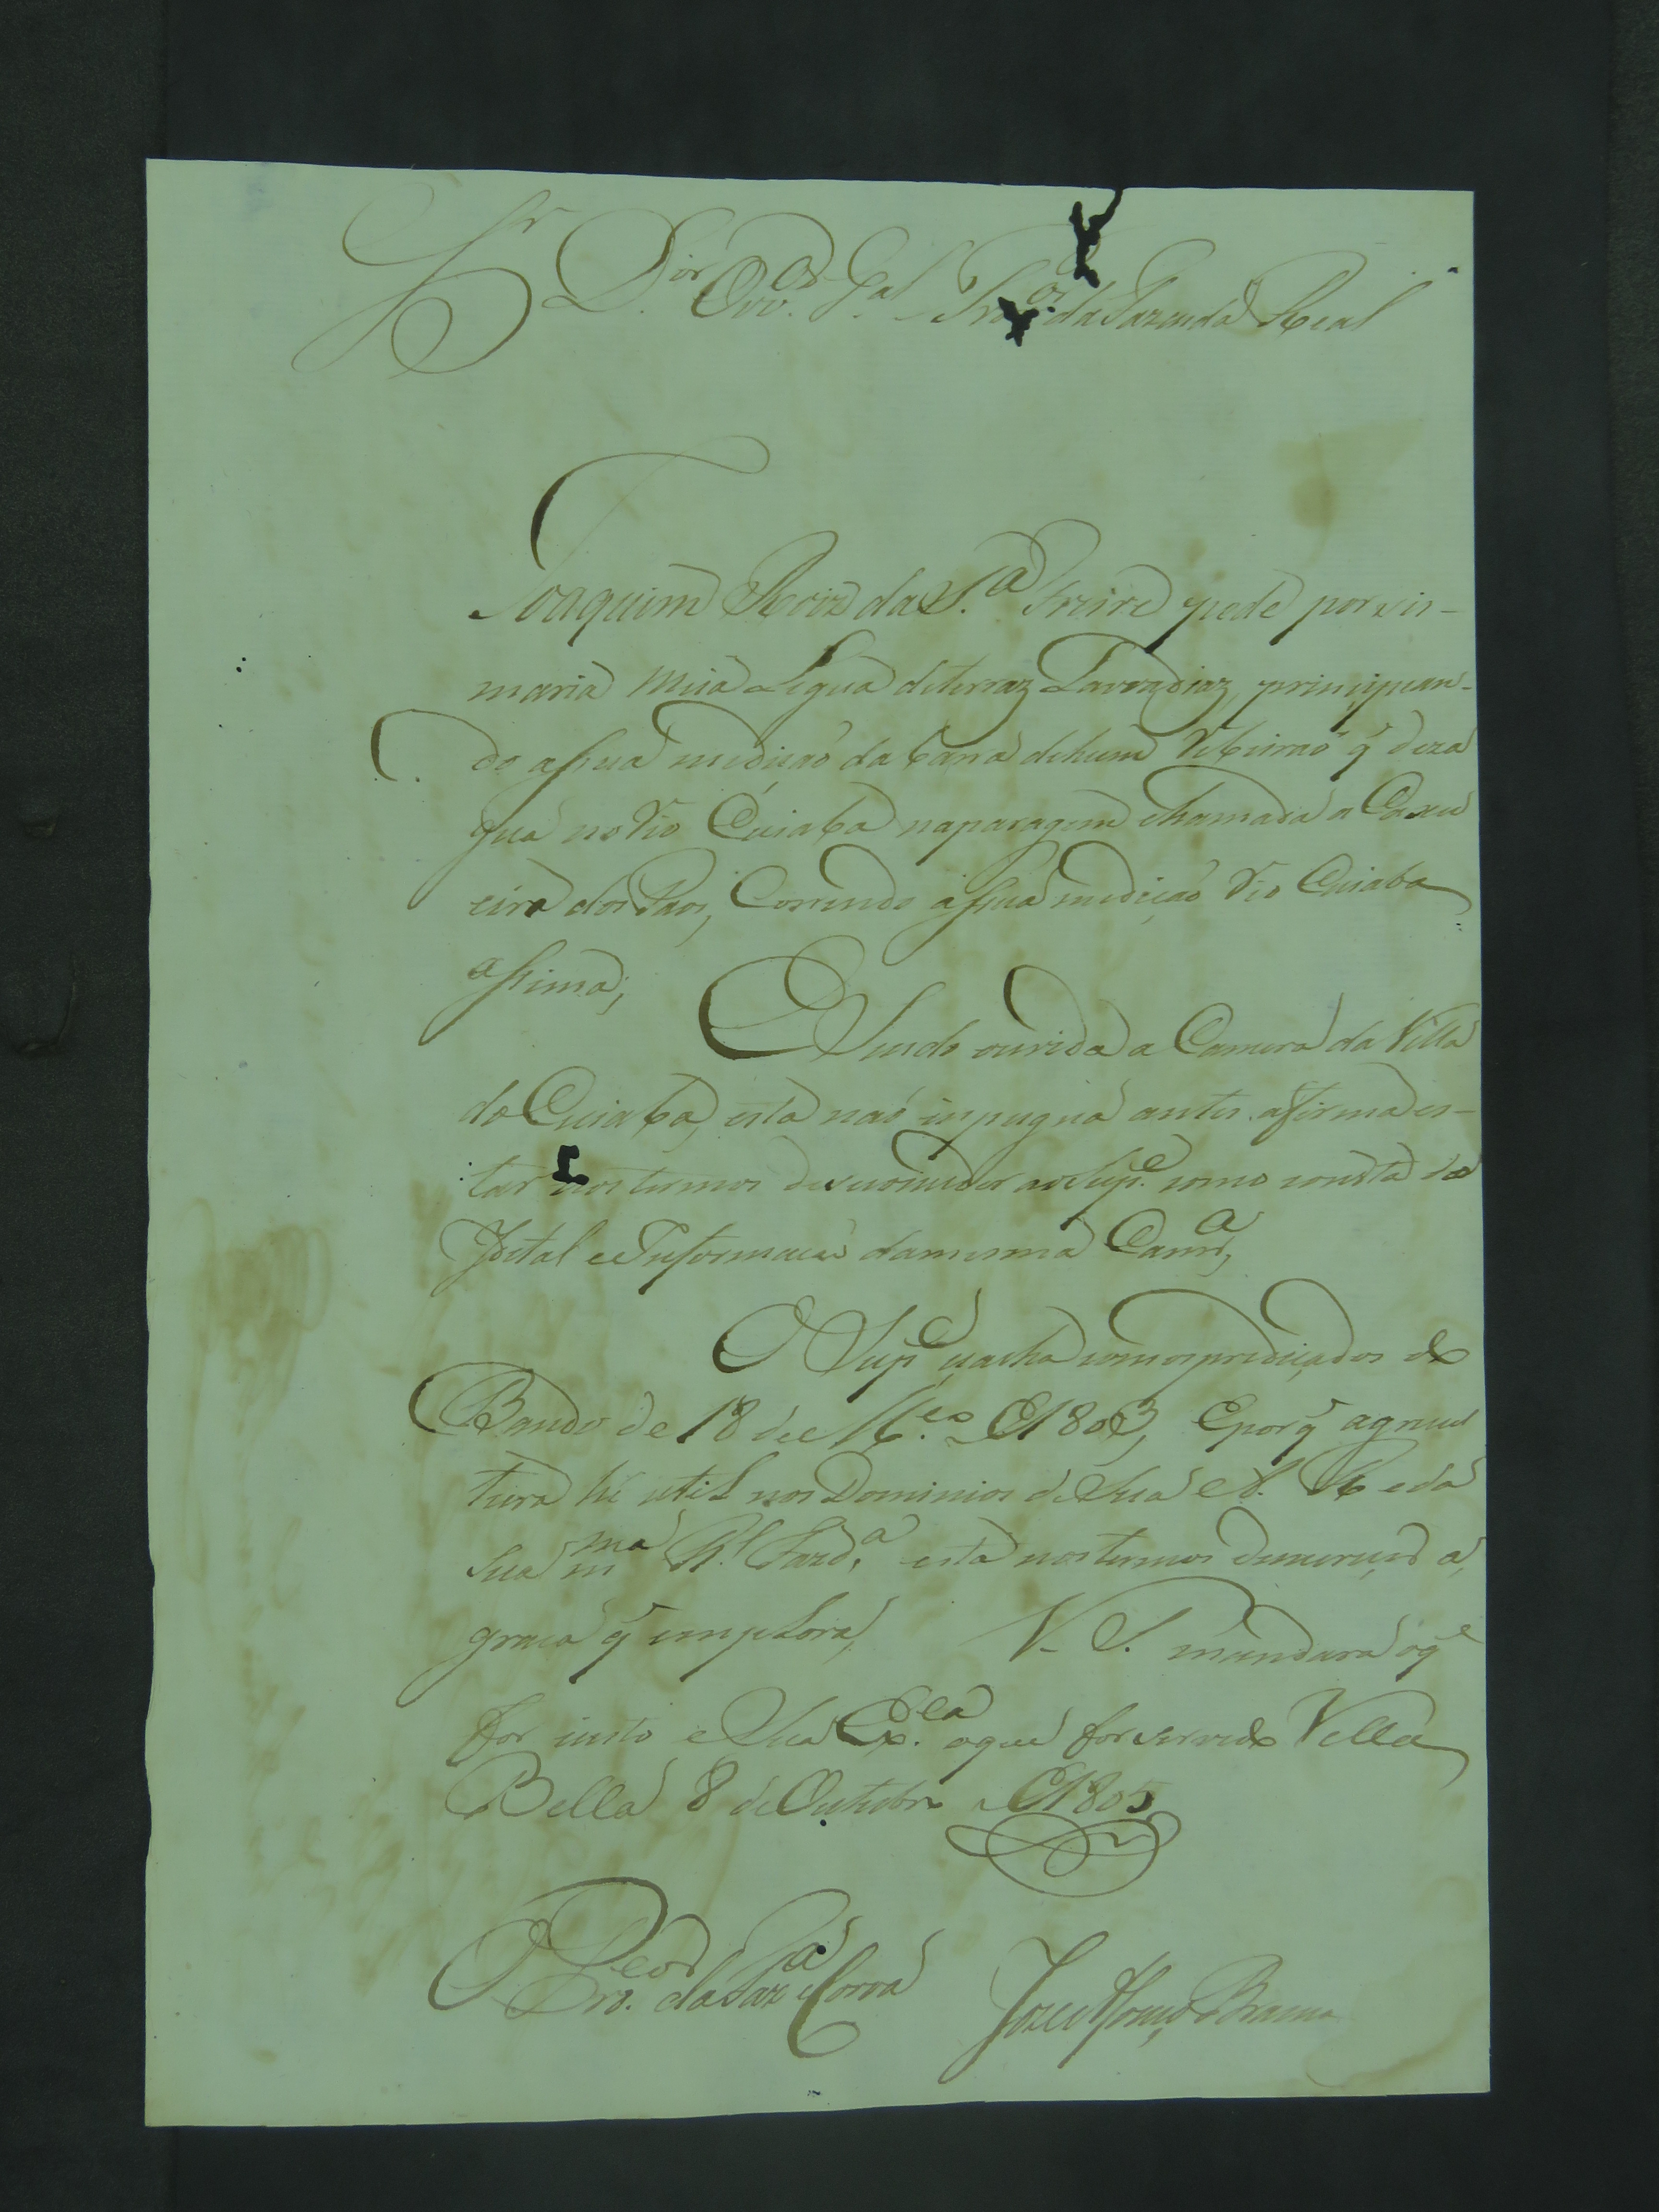 Sr. Dor. Ouvor. Gal. Pror. da Fazenda Real
Joaquim Roiz da Sa. Freire pede por sis-
maria meia Legua de terraz Lavradiaz, principian-
do assua medisaõ da bara de hum Ribeiraõ q̃ deza
gua no Rio Cuiabá na paragem chamada a Caxu
eira dos Páos, Correndo assua medicaõ Rio Cuiaba
assima;
Sendo ouvida a Camera da Villa
do Cuiabá, esta naõ inpugna antes afirma es-
tar nos termos de se conceder ao Supe. como consta do
Edital e Informacaõ da mesma Camra,
O Supe. se acha com os predicados do
Bando de 18 de 1803, E por q̃ agricul
tura hé util nos Dominios de Sua A. R. e da
Sua mma Rl. Fazda. está nos termos de merecer a
graca q̃ emplora, V. S. mandará o qe
for justo e Sua Exa. o que for servido Villa
Bella 8 de Outubro de 1805
O Pror. da Faza. e Coroa
Joze Afonço